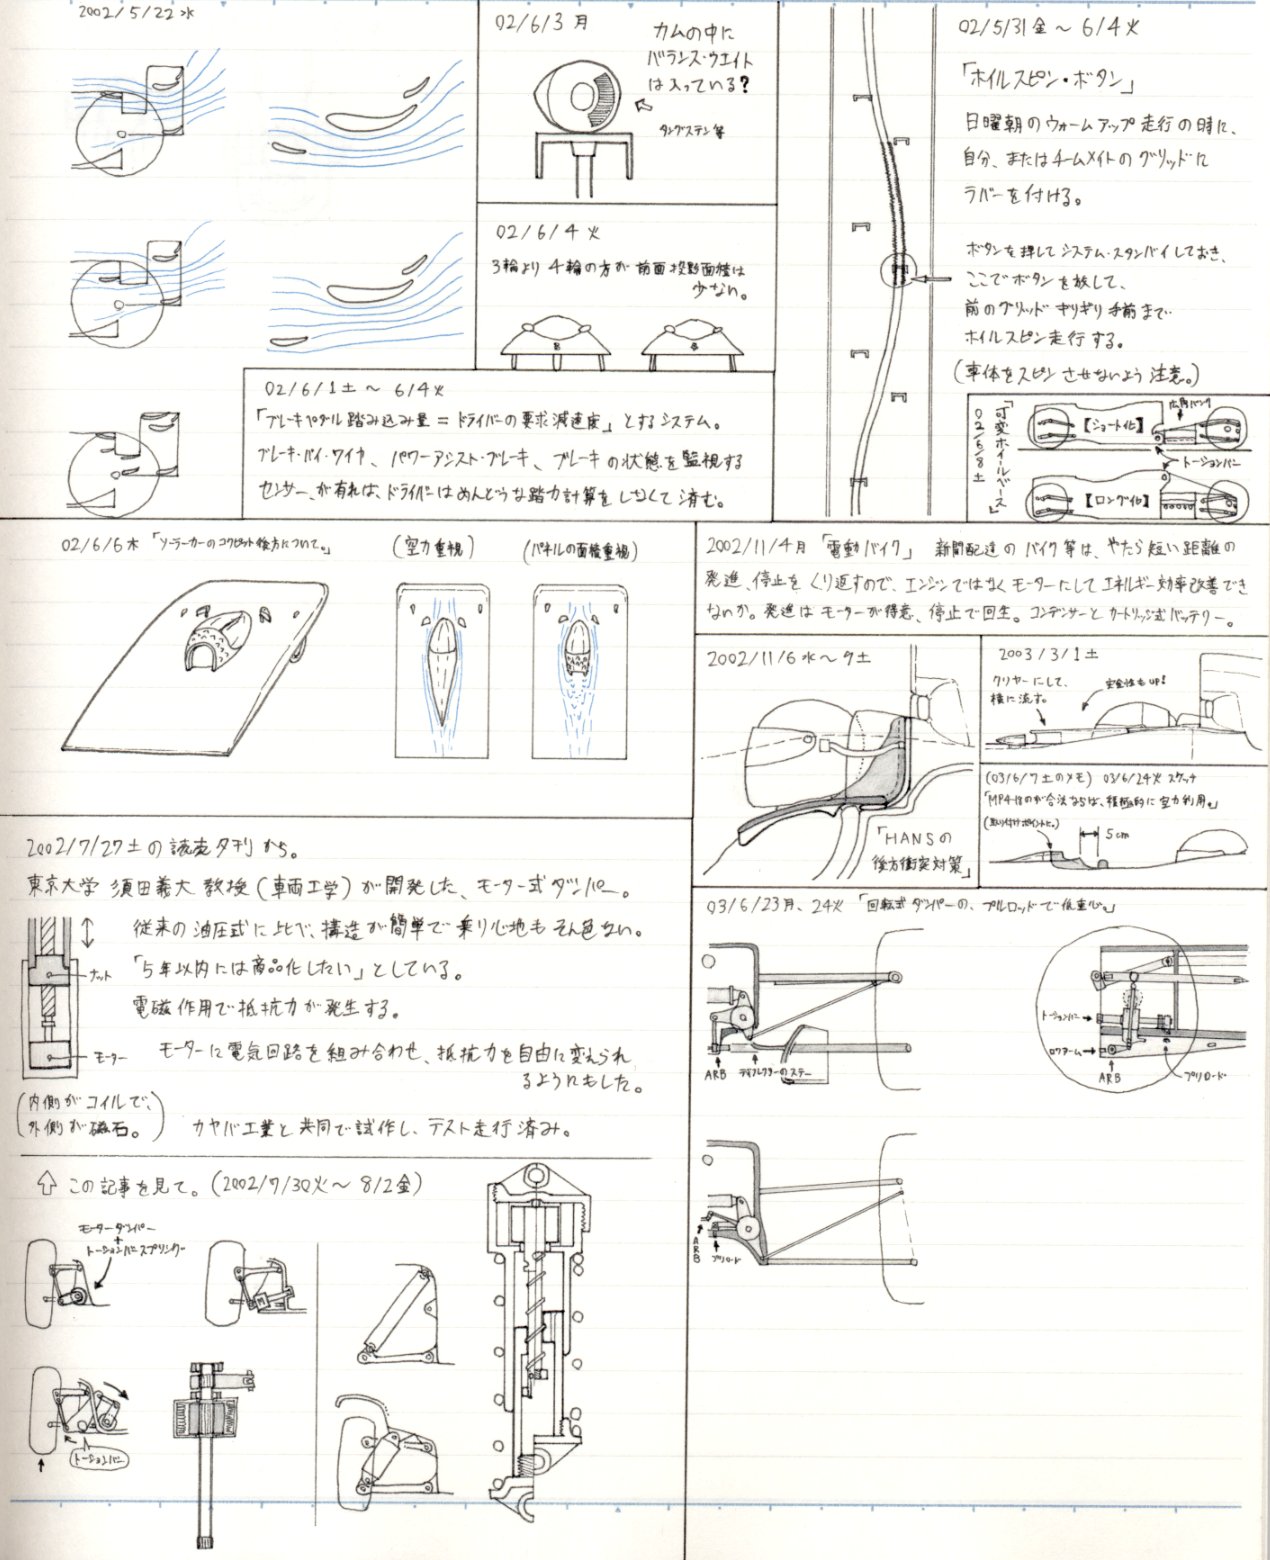 2002/5/22水
02/6/3月
カムの中に
バランス・ウエイト
は入っている?
タングステン等
02/6/4火
3輪より4輪の方が前面投影面積は
少ない。
02/5/31金〜6/4火
「ホイルスピン・ボタン」
日曜朝のウォームアップ走行の時に、
自分、またはチームメイトのグリッドに
ラバーを付ける。
ボタンを押してシステム・スタンバイしておき、
ここでボタンを放して、
前のグリッドギリギリ手前まで
ホイルスピン走行する。
(車体をスピンさせないよう注意。)
02/6/1土〜6/4火
「ブレーキペダル踏み込み量=ドライバーの要求減速度」とするシステム。
ブレーキ・バイ・ワイヤ、パワーアシスト・ブレーキ、ブレーキの状態を監視する
センサー、が有れば、ドライバーはめんどうな踏力計算をしなくて済む。
「可変ホイールベース」
02/6/8土
【ショート化】
トーションバー
【ロング化】
02/6/6木「ソーラーカーのコクピット後方について。」
(空力重視)
(パネルの面積重視)
2002/11/4月「電動バイク」 新聞配達のバイク等は、やたら短い距離の
発進、停止をくり返すので、エンジンではなくモーターにしてエネルギー効率改善でき
ないか。発進はモーターが得意、停止で回生。コンデンサーとカートリッジ式バッテリー。
2002/11/6水〜9土
「HANSの
後方衝突対策」
2003/3/1土
クリヤーにして、
横に流す。
安全性もUP!
(03/6/7土のメモ) 03/6/24火スケッチ
「MP4-18のが合法ならば、積極的に空力利用。」
(取り付けポイントに。)
5cm
2002/7/27土の読売夕刊から。
東京大学 須田義大教授(車両工学)が開発した、モーター式ダンパー。
従来の油圧式に比べ、構造が簡単で乗り心地もそん色ない。
「5年以内には商品化したい」としている。
電磁作用で抵抗力が発生する。
モーターに電気回路を組み合わせ、抵抗力を自由に変えられ
るようにもした。
ナット
モーター
(内側がコイルで、
外側が磁石。)
カヤバ工業と共同で試作し、テスト走行済み。
この記事を見て。(2002/7/30火〜8/2金)
モーターダンパー
+
トーションバースプリング
M
トーションバー
03/6/23月、24火「回転式ダンパーの、プルロッドで低重心。」
ARB
ディフレクターのステー
トーションバー
ロワアーム
ARB
プリロード
ARB
プリロード